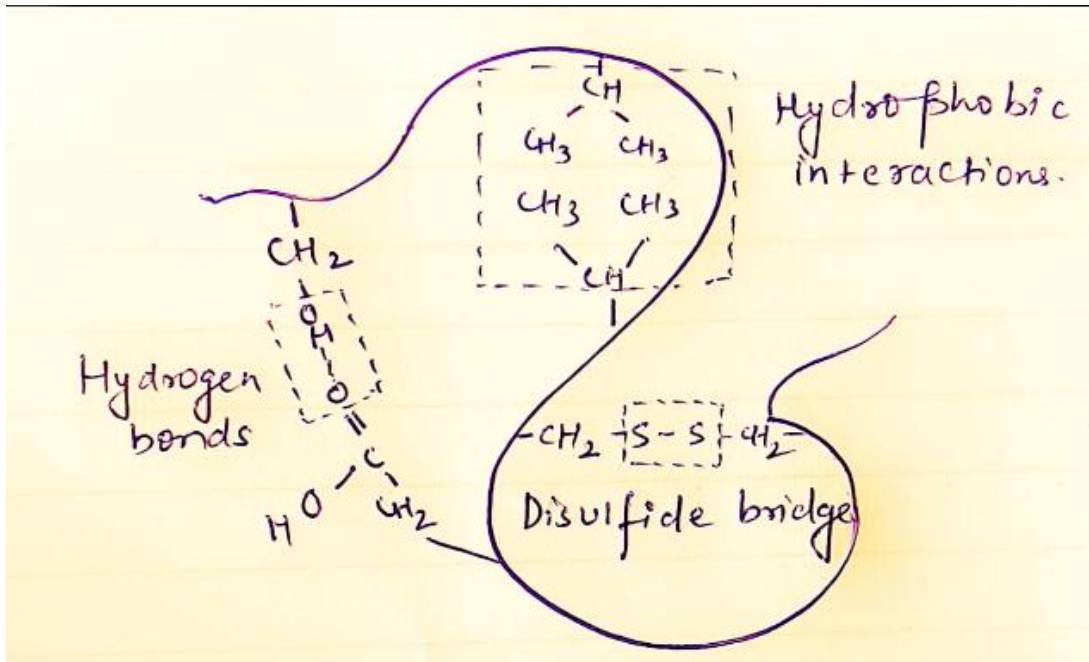 CH
CH3 CH3
CH3 CH3
CH
Hydrophobic
interactions.
CH2
O
H
O
C
H O CH2
Hydrogen
bonds
-CH2 -S-S-CH2-
Disulfide bridge